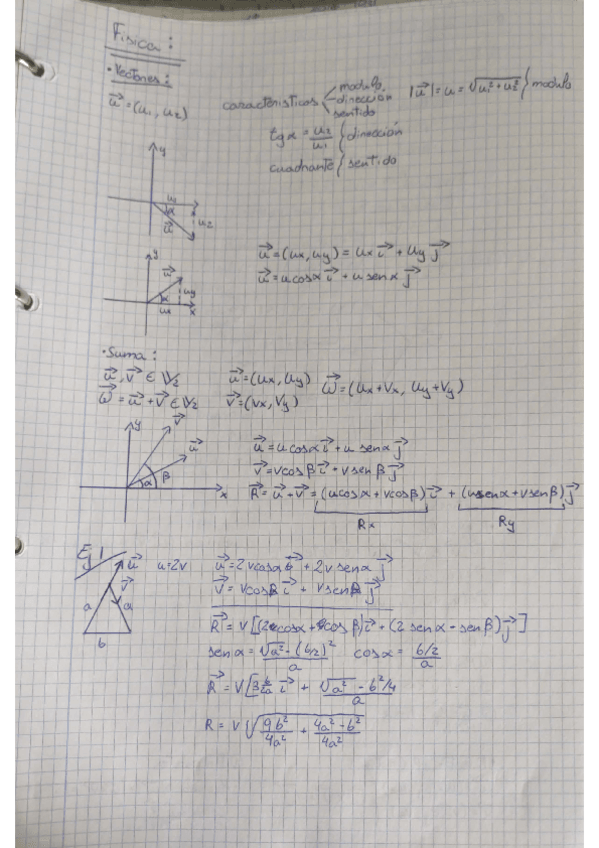 Fisica:
·Vectores:
u⃗=(u₁,u₂)
caracteristicas
modulo
dirección
sentido
|u⃗|=u=√(u₁²+u₂²) } modulo
tgα=u₂/u₁ { dirección
cuadrante { sentido
y
u₁
α
u⃗
u₂
y
u⃗
α
uy
ux
x
u⃗=(ux,uy)=ux i⃗+uy j⃗
u⃗=ucosα i⃗+u senα j⃗
·Suma:
u⃗,v⃗ ∈ V₂
w⃗=u⃗+v⃗ ∈ V₂
u⃗=(ux,uy)
v⃗=(vx,vy)
w⃗=(ux+vx, uy+vy)
y
v⃗
u⃗
α
β
x
u⃗=ucosα i⃗+u senα j⃗
v⃗=vcosβ i⃗+v senβ j⃗
R⃗=u⃗+v⃗=(ucosα+vcosβ) i⃗+(usenα+vsenβ) j⃗
Rx
Ry
Ej 1
u⃗
v⃗
a
a
b
u=2v
u⃗=2vcosα i⃗+2v senα j⃗
v⃗=vcosβ i⃗+v senβ j⃗
R⃗=v[(2cosα+cosβ) i⃗+(2 senα-senβ) j⃗]
senα=√(a²-(b/2)²)/a cosα=(b/2)/a
R⃗=v[3b/2a i⃗+√(a²-b²/4)/a
R=v√(9b²/4a²+(4a²-b²)/4a²)